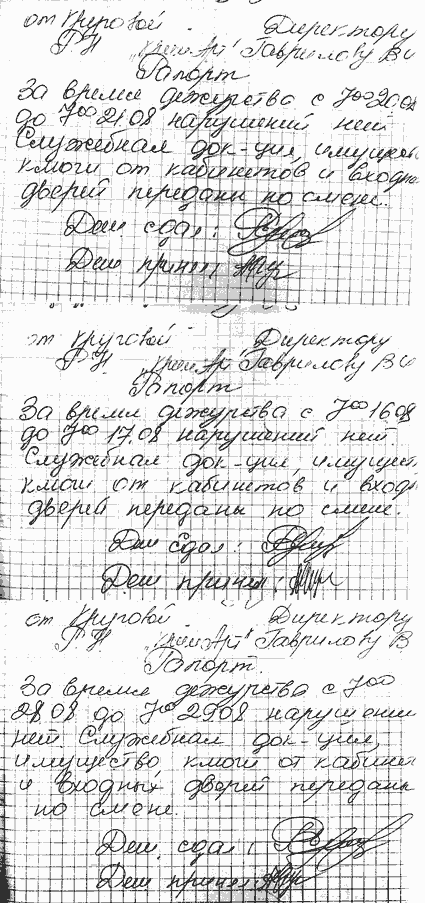 от Круговой Директору
Р.Н. "Крет Арт" Гаврилову В
Рапорт
За время дежурства с 7⁰⁰ 20.08
до 7⁰⁰ 21.08 нарушений нет
Служебная док-ция, имущес
ключи от кабинетов и входн
дверей переданы по смене.
Деж сдал:
Деж принял:
от Круговой Директору
Р.Н. Гаврилову В
Рапорт
За время дежурства с 7⁰⁰ 16.08
до 7⁰⁰ 17.08 нарушений нет
Служебная док-ция, имущест
ключи от кабинетов и входн
дверей переданы по смене.
Деж сдал:
Деж принял:
от Круговой Директору
Р.Н. Гаврилову В
Рапорт.
За время дежурства с 7⁰⁰
28.08 до 7⁰⁰ 29.08 нарушении
нет. Служебная док-ция,
имущество ключи от кабинет
и входных дверей переданы
по смене.
Деж. сдал:
Деж принял: